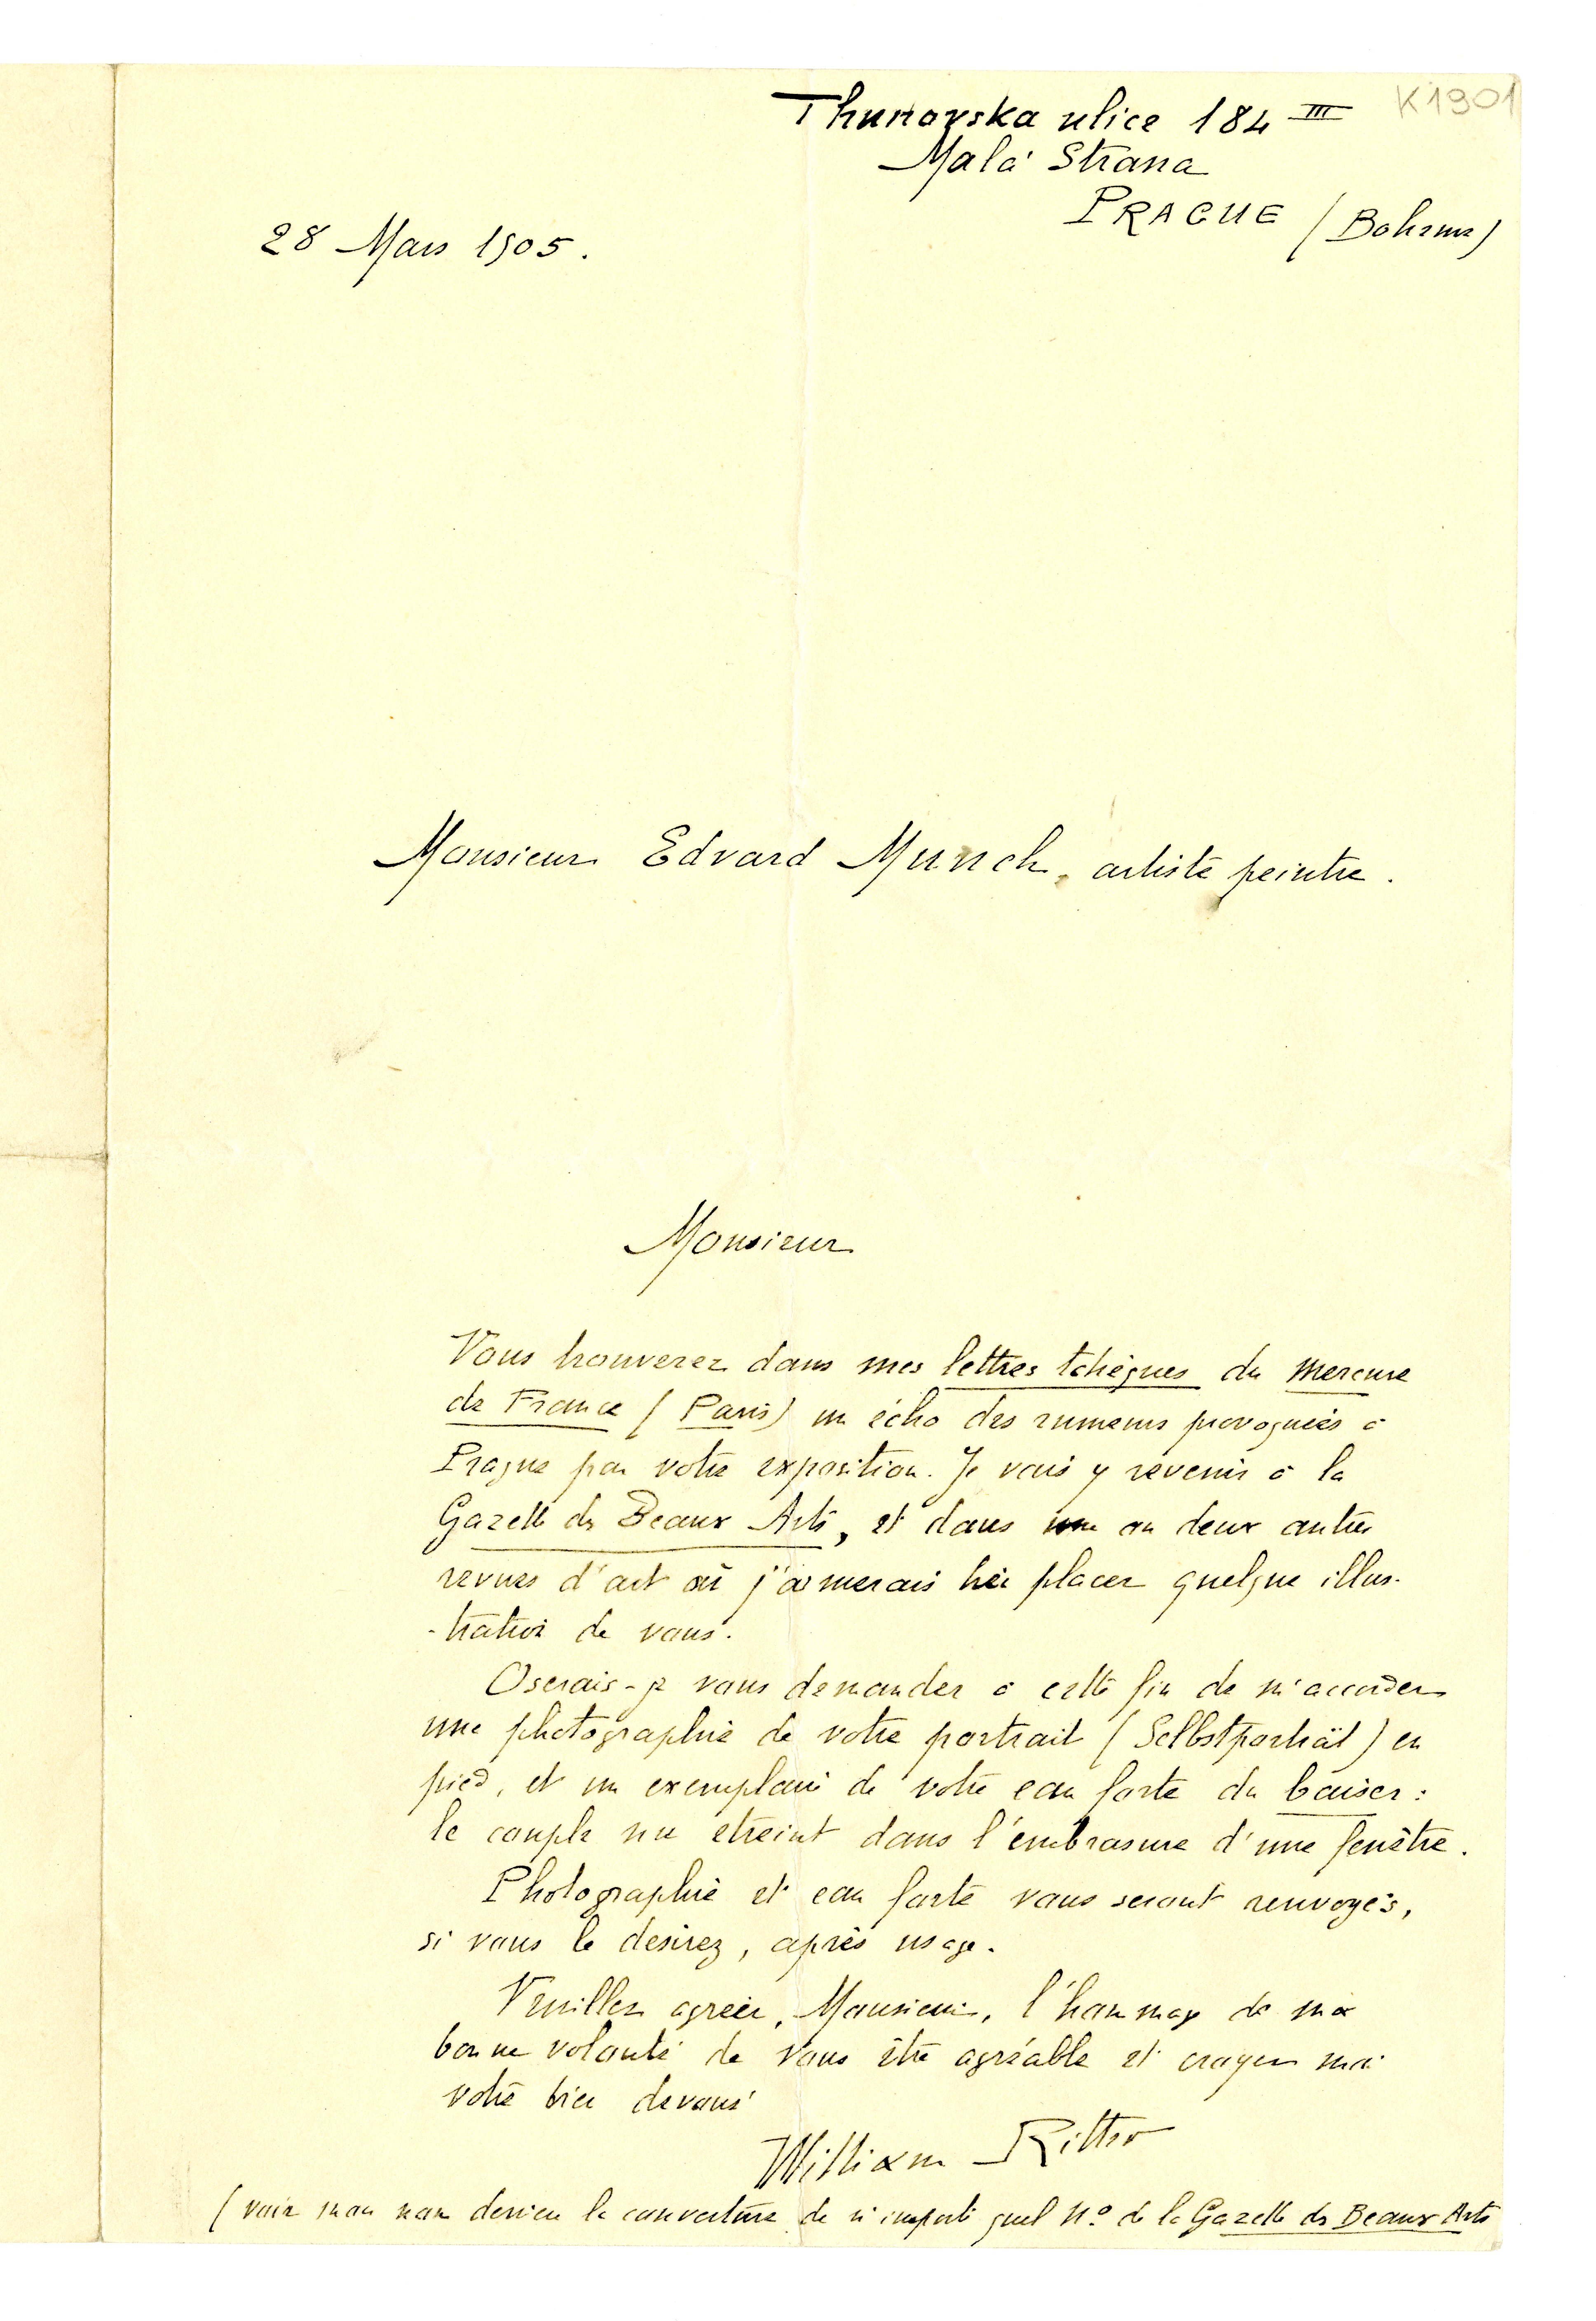 K1901
Thunovska ulice 184 III
Malá Strana
PRAGUE (Boheme)
28 Mars 1905.
Monsieur Edvard Munch, artiste peintre.
Monsieur
Vous trouverez dans mes lettres tchèques du Mercure
de France (Paris) un écho des rumeurs provoquées à
Prague par votre exposition. Je vais y revenir à la
Gazette des Beaux Arts, et dans une ou deux autres
revues d'art où j'aimerais bien placer quelque illus-
-tration de vous.
Oserais-je vous demander à cette fin de m'accorder
une photographie de votre portrait (Selbstporträt) en
pied, et un exemplaire de votre eau forte du baiser:
le couple nu étreint dans l'embrasure d'une fenêtre.
Photographie et eau forte vous seront renvoyés,
si vous le désirez, après usage.
Veuillez agréer, Monsieur, l'hommage de ma
bonne volonté de vous être agréable et croyez moi
votre bien devoué
William Ritter
(voir mon nom derrière la couverture de n'importe quel No de la Gazette des Beaux Arts